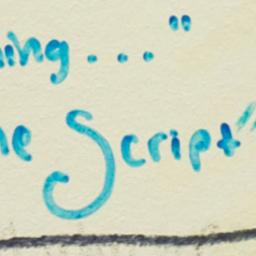 ing..."
he Script"